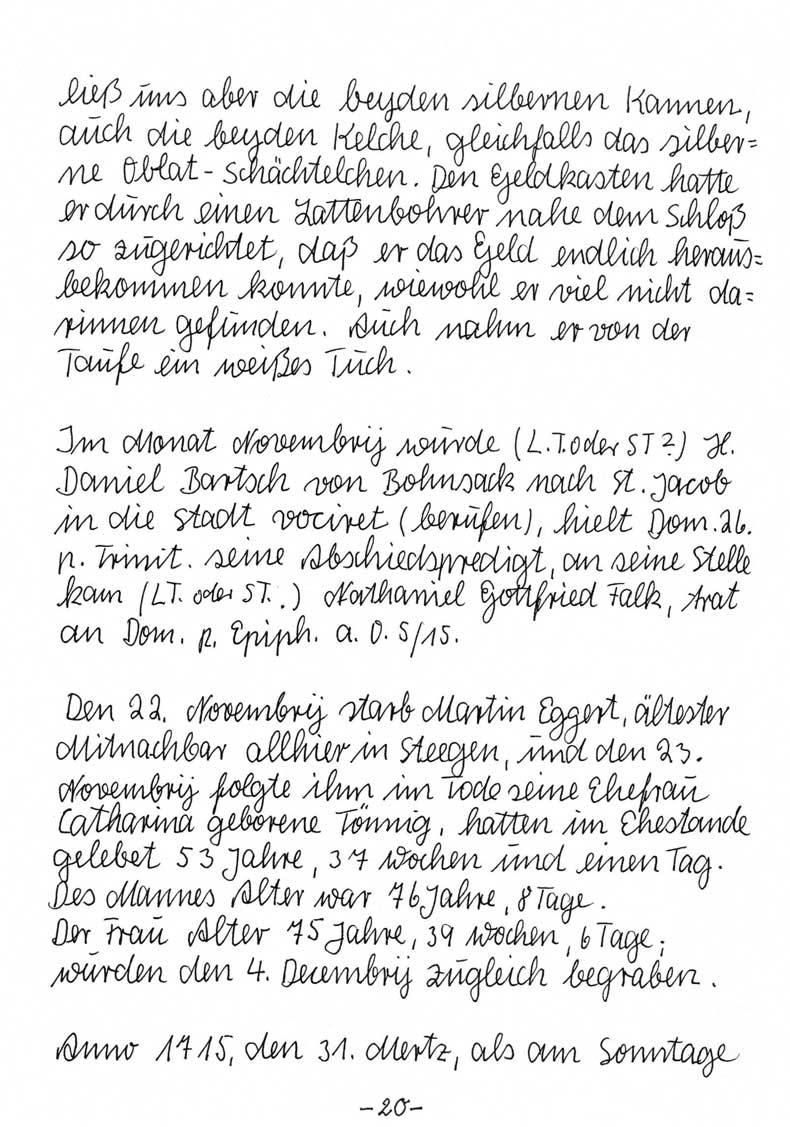 ließ uns aber die beyden silbernen Kannen,
auch die beyden Kelche, gleichfalls das silber=
ne Oblat-Schächtelchen. Den Geldkasten hatte
er durch einen Lattenbohrer nahe dem Schloß
so zugerichtet, daß er das Geld endlich heraus=
bekommen konnte, wiewohl er viel nicht da=
rinnen gefunden. Auch nahm er von der
Taufe ein weißes Tuch.
Im Monat Novembrij wurde (L.T. oder ST?) H.
Daniel Bartsch von Bohnsack nach St. Jacob
in die Stadt vociret (berufen), hielt Dom. 26.
p. Trinit. seine Abschiedspredigt, an seine Stelle
kam (LT. oder ST..) Nathaniel Gottfried Falk, trat
an Dom. p. Epiph. a. O. S/15.
Den 22. Novembrij starb Martin Eggert, ältester
Mitnachbar allhier in Steegen, und den 23.
Novembrij folgte ihm im Tode seine Ehefrau
Catharina geborene Tönnig, hatten im Ehestande
gelebet 53 Jahre, 37 Wochen und einen Tag.
Des Mannes Alter war 76 Jahre, 8 Tage.
Der Frau Alter 75 Jahre, 39 Wochen, 6 Tage;
wurden den 4. Decembrij zugleich begraben.
Anno 1715, den 31. Mertz, als am Sonntage
-20-